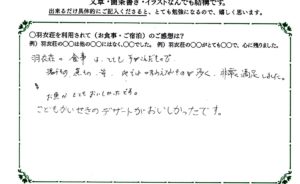 文章・箇条書き・イラストなんでも結構です。
出来るだけ具体的にご記入くださると、とても勉強になるので、嬉しく思います。
○羽衣荘を利用されて(お食事・ご宿泊)のご感想は?
例)羽衣荘の○○は他の○○にはなく、○○でした。 例)羽衣荘の○○がとても○○で、心に残りました。
羽衣荘の食事は、とても手がこんだもので
味わえるものが多く、非常に満足しました。
お魚がとてもおいしかったです。
こどもかいせきのデザートがおいしかったです。